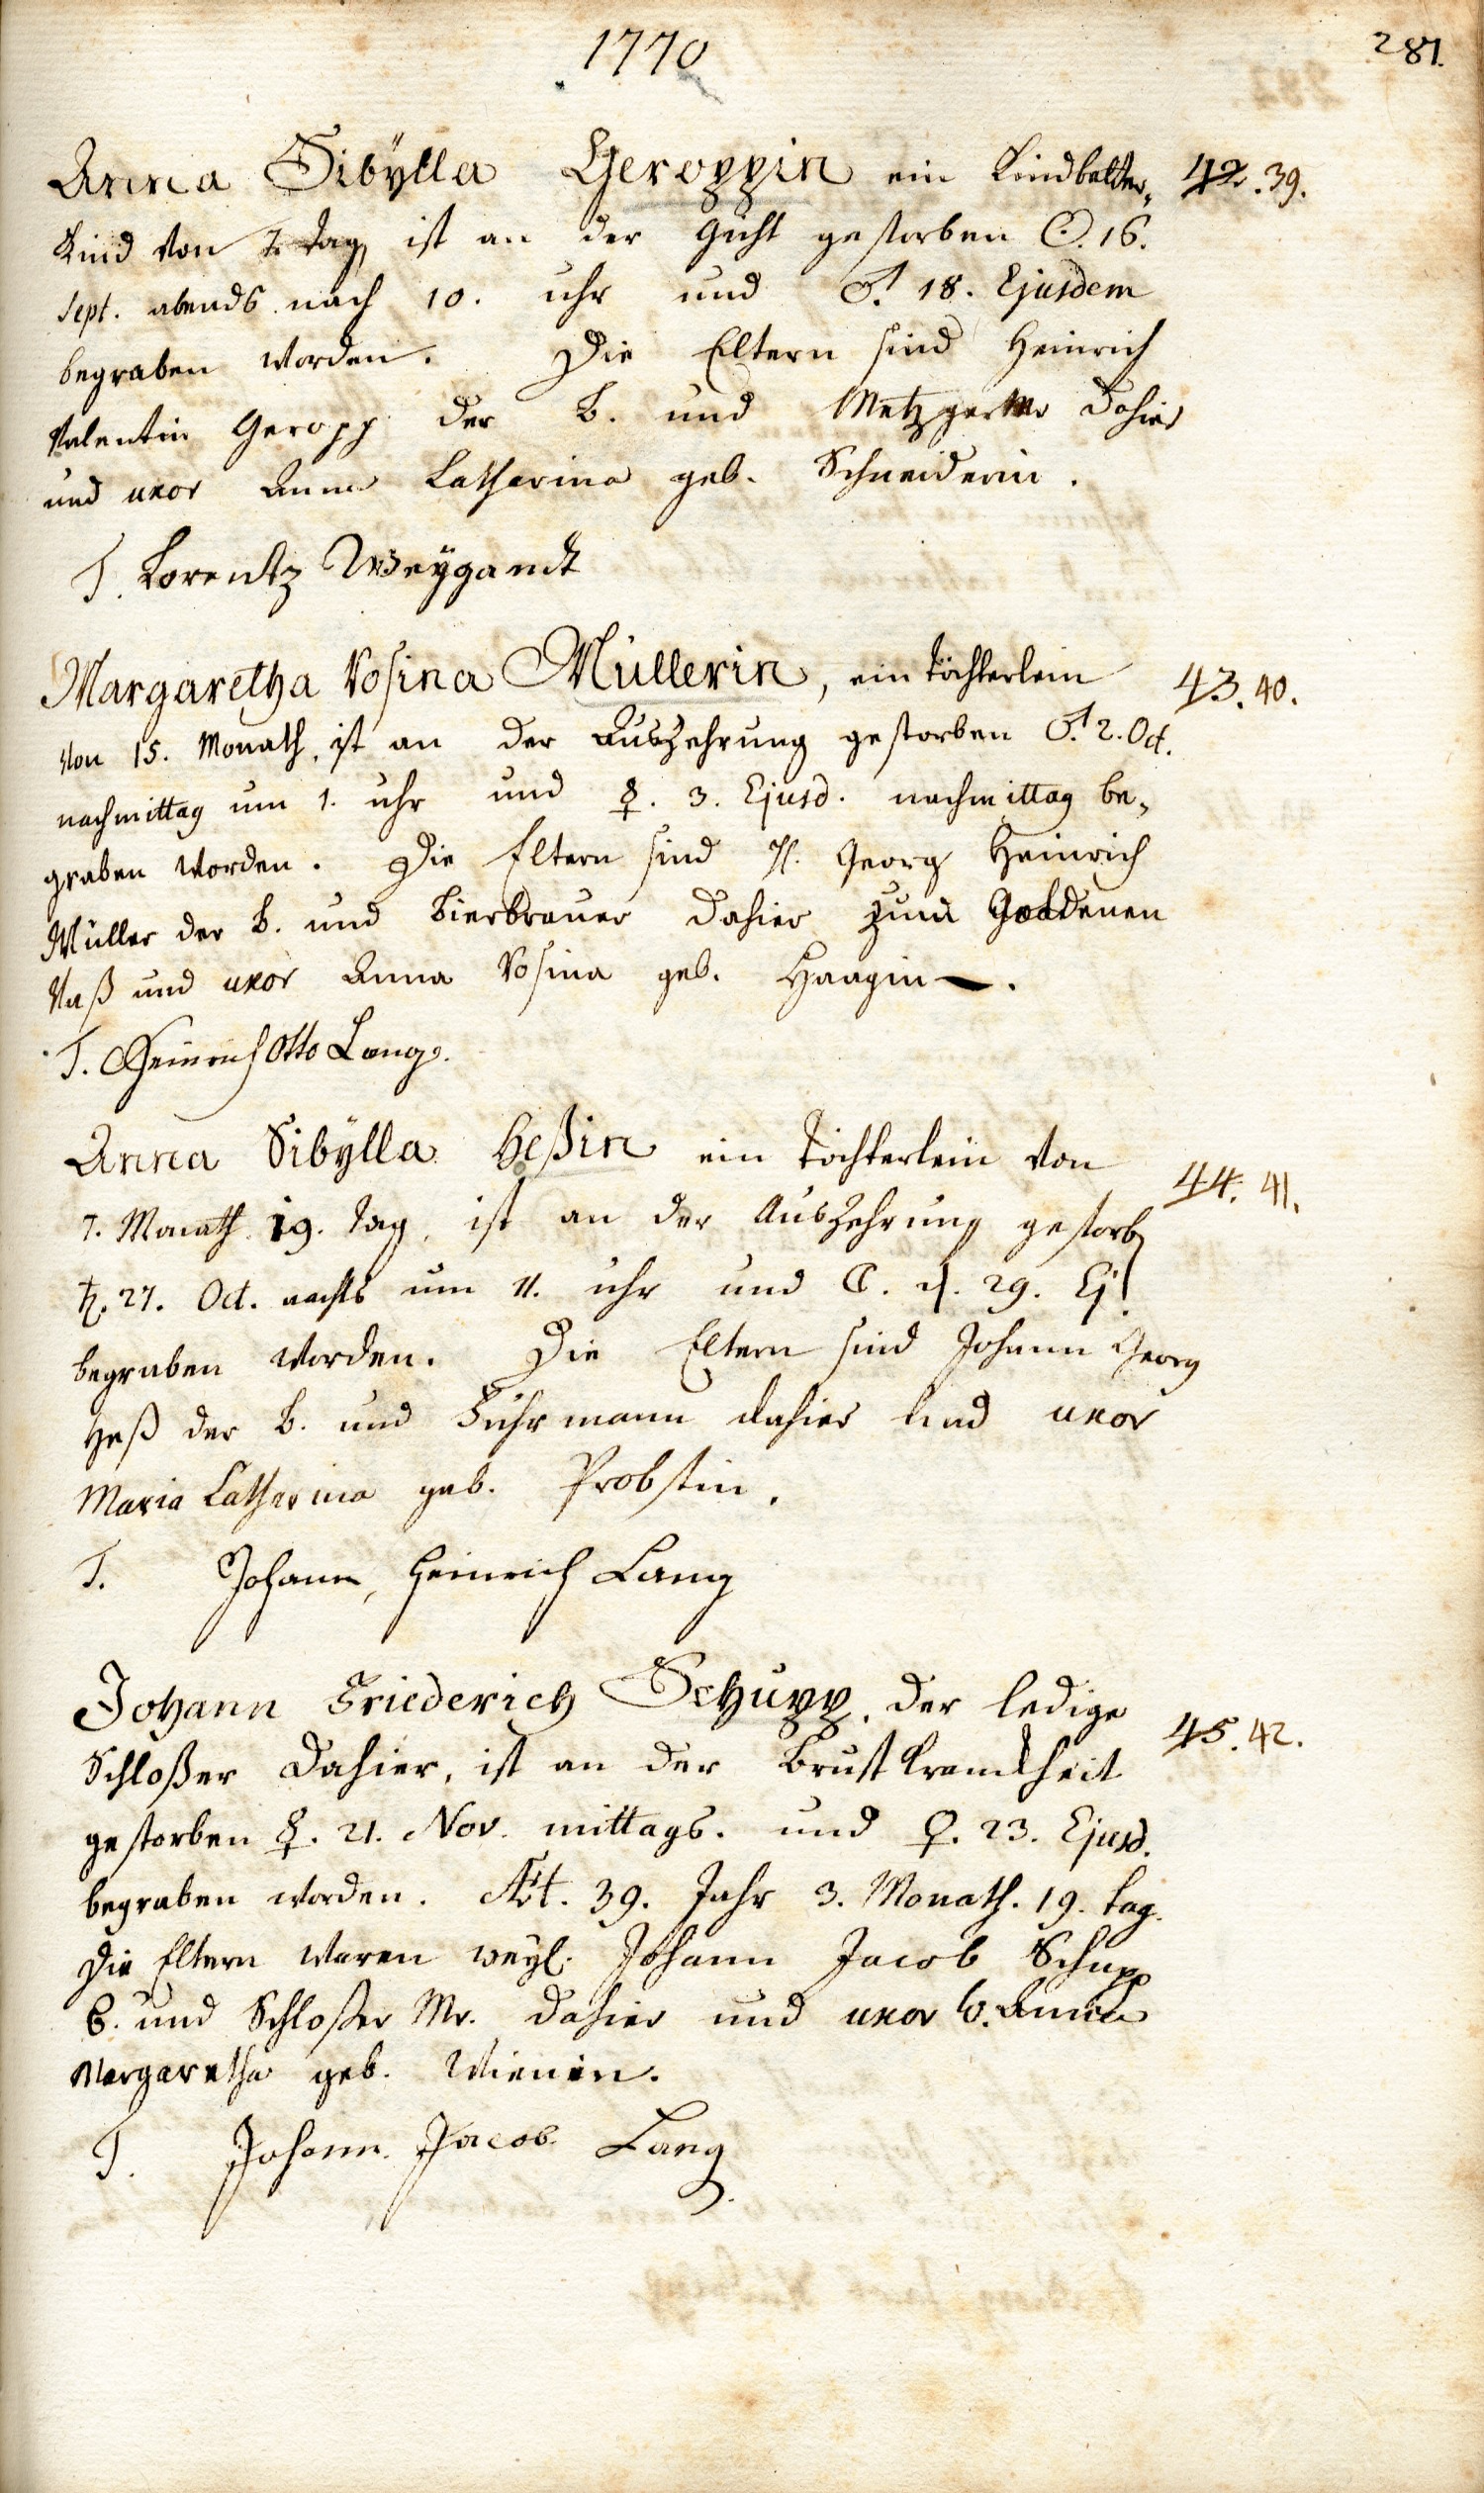 1770
287.
Anna Sibÿlla Geroppin ein Kindbetter, 42. 39.
Kind von 7. Tag, ist an der Gicht gestorben ☉. 16.
Sept. abends nach 10. uhr und ♂. 18. Ejusdem
begraben worden. Die Eltern sind Heinrich
Valentin Geropp der B. und Metzger Mr dahier
und uxor Anna Catharina geb. Schneiderin.
T. Lorentz Weÿgandt
Margaretha Rosina Müllerin, ein Töchterlein 43. 40.
von 15. Monath, ist an der Auszehrung gestorben ♂. 2. Oct.
nachmittag um 1. uhr und ☿. 3. Ejusd. nachmittag be,
graben worden. Die Eltern sind H. Georg Heinrich
Müller der B. und Bierbrauer dahier zum Goldenen
Vaß und uxor Anna Rosina geb. Haagin.
T. Heinrich Otto Lang.
Anna Sibÿlla Heßin ein Töchterlein von 44. 41.
7. Monath 19. Tag, ist an der Auszehrung gestorb
♄. 27. Oct. nachts um 11. uhr und ☾. d. 29. Ej.
begraben worden. Die Eltern sind Johann Georg
Heß der B. und Fuhrmann dahier und uxor
Maria Catharina geb. Probstin.
T. Johann, Heinrich Lang
Johann Friederich Schupp, der ledige 45. 42.
Schloßer dahier, ist an der Brust Krankheit
gestorben ☿. 21. Nov. mittags. und ♀. 23. Ejusd.
begraben worden. Æt. 39. Jahr 3. Monath. 19. Tag.
Die Eltern waren weyl. Johann Jacob Schupp
B. und Schloßer Mr. dahier und uxor Anna
Margaretha geb. Wienin.
T. Johann. Jacob Lang